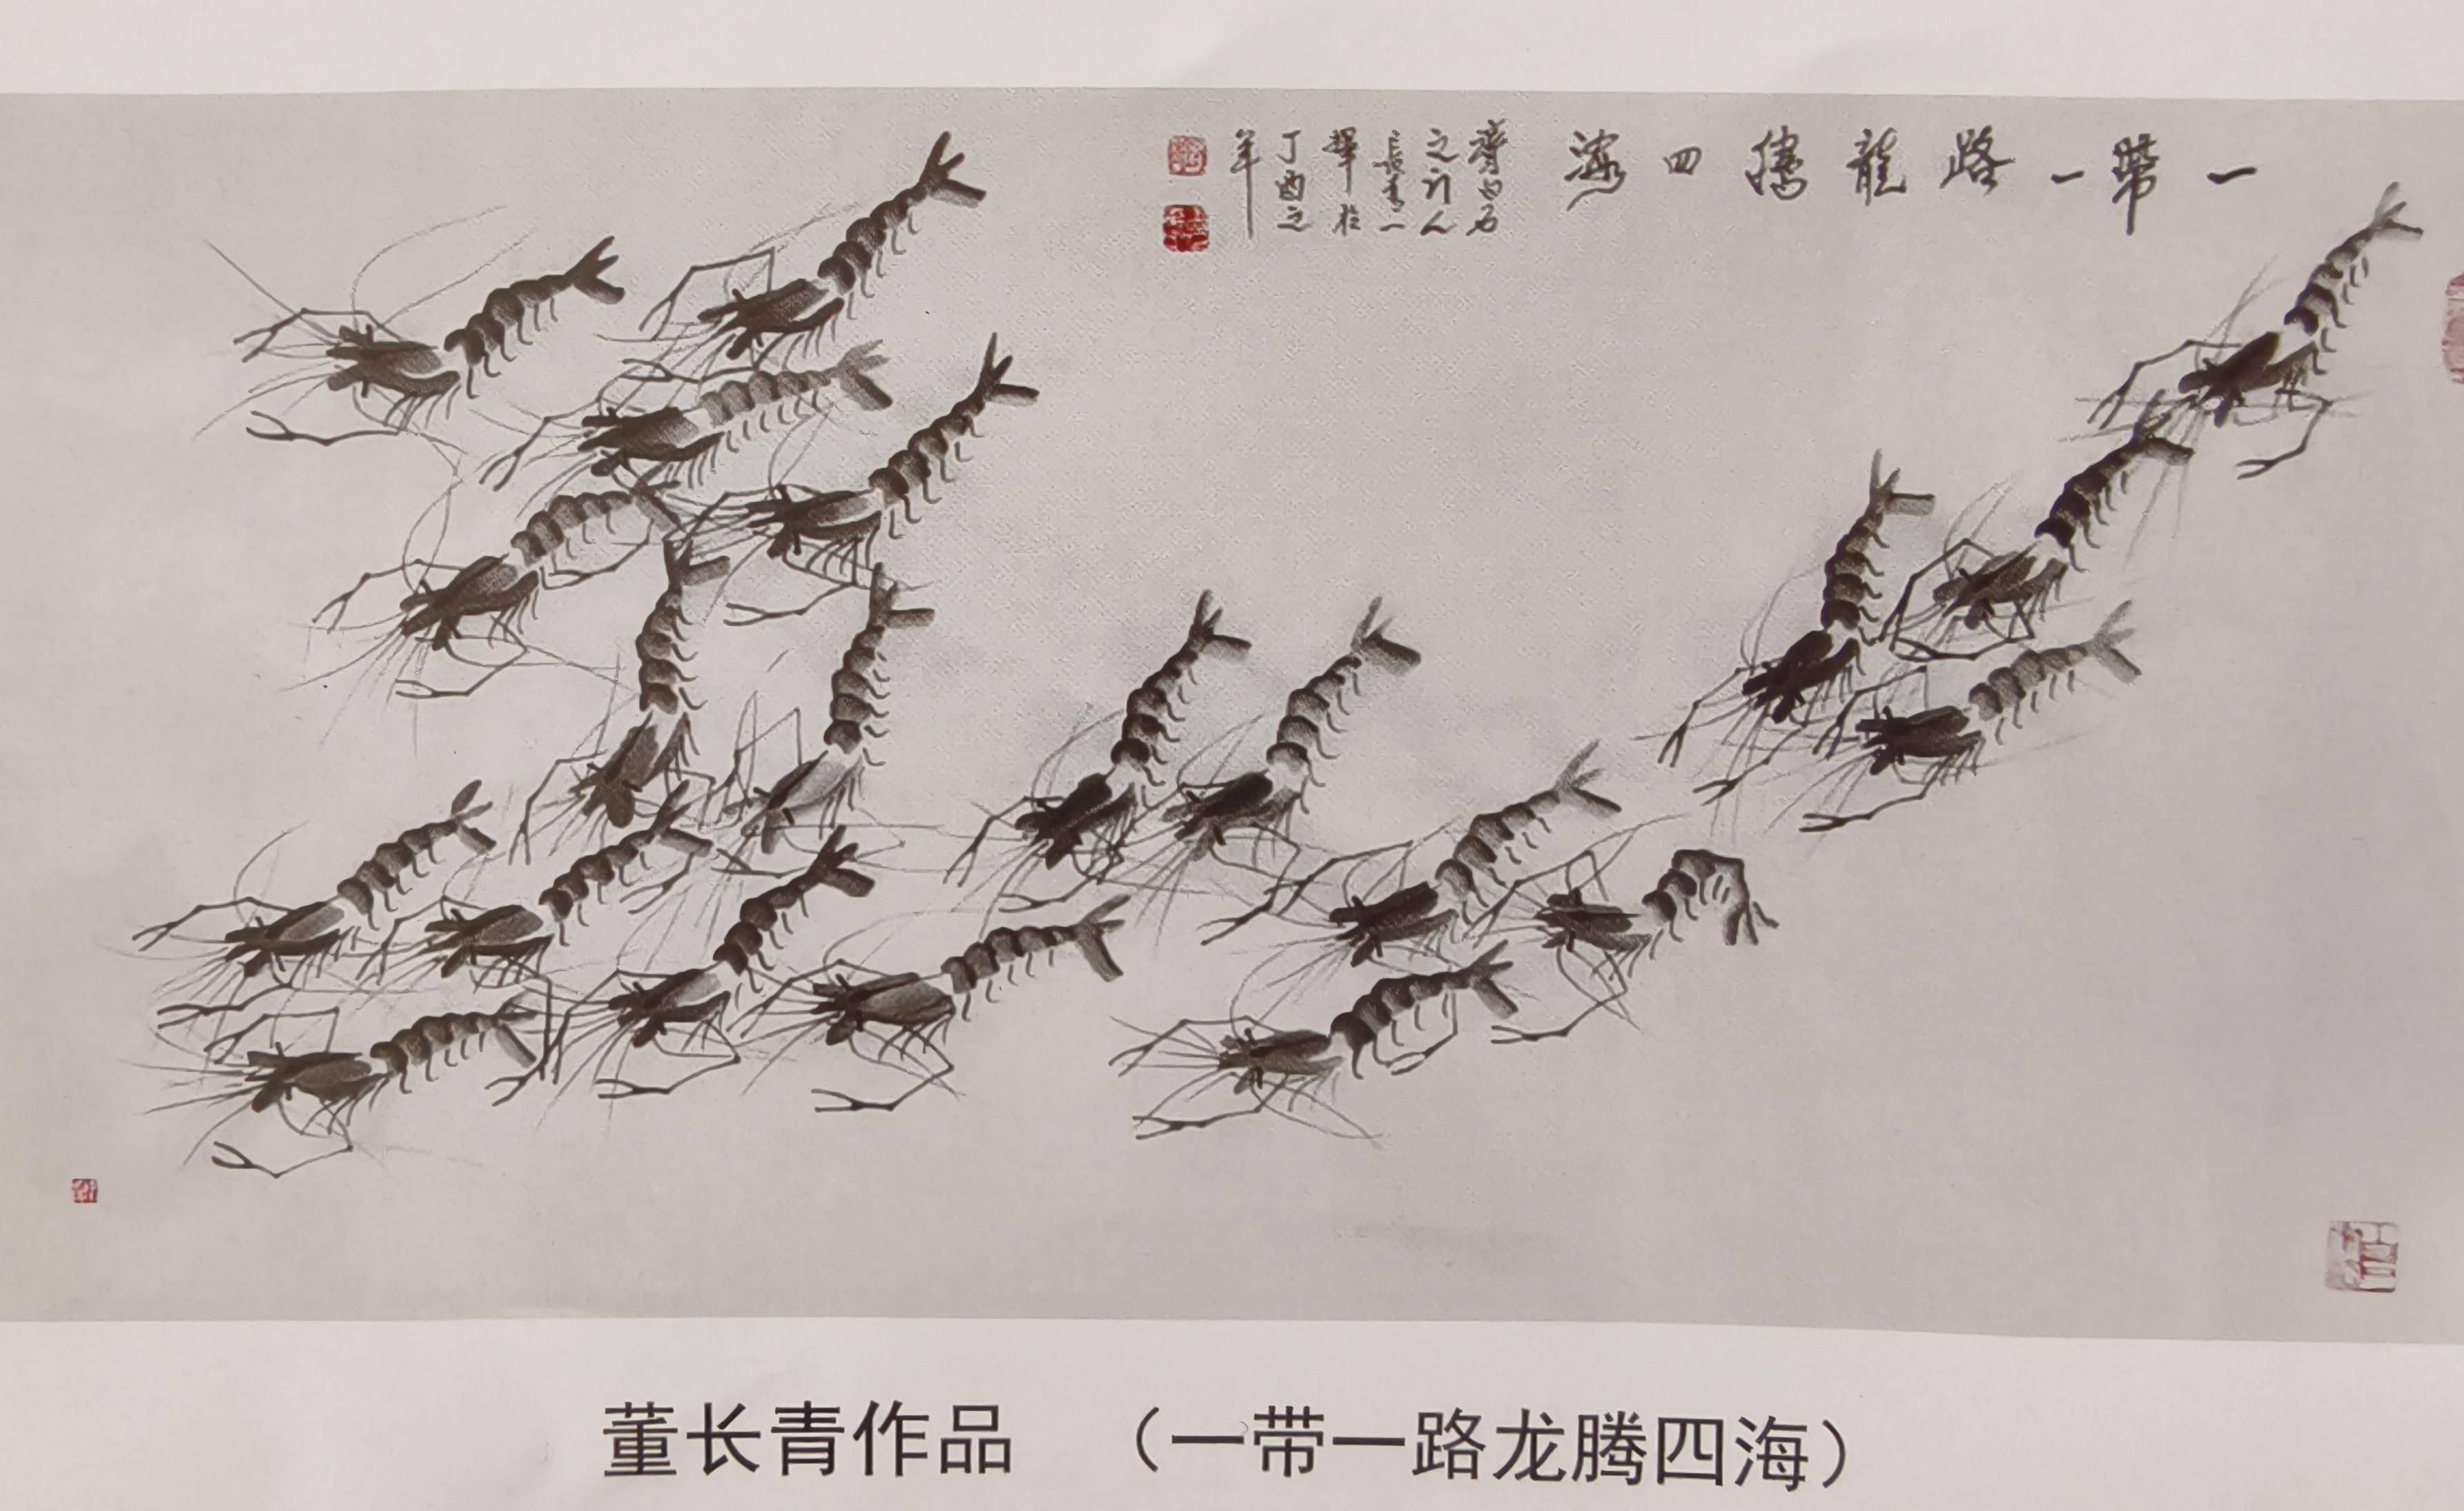 一帶一路龍騰四海
齊白石
之门人
長青一
揮於
丁酉之
年
董长青作品 （一带一路龙腾四海）